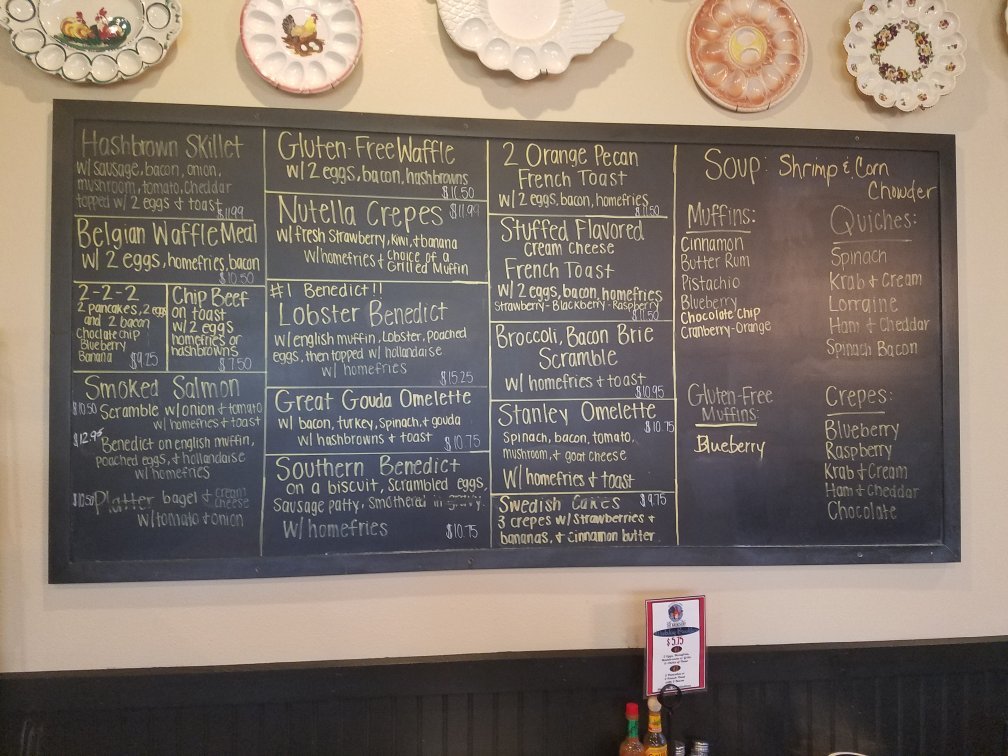 Hashbrown Skillet
w/ sausage, bacon, onion,
mushroom, tomato, cheddar
topped w/ 2 eggs + toast
$11.99
Belgian Waffle Meal
w/ 2 eggs, homefries, bacon
$10.50
2-2-2
2 pancakes, 2 eggs
and 2 bacon
Choclate chip
Blueberry
Banana
$9.25
Chip Beef
on toast
w/ 2 eggs
homefries or
hashbrowns
$7.50
Smoked Salmon
$10.50 Scramble w/ onion + tomato
w/ homefries + toast
$12.95
Benedict on english muffin,
poached eggs, + hollandaise
w/ homefries
$10.50 Platter bagel + cream cheese
w/ tomato + onion
Gluten-Free Waffle
w/ 2 eggs, bacon, hashbrowns
Nutella Crepes $11.99
w/ fresh strawberry, kiwi, + banana
w/ homefries + choice of a
Grilled Muffin
#1 Benedict!!
Lobster Benedict
w/ english muffin, lobster, poached
eggs, then topped w/ hollandaise
w/ homefries
$15.25
Great Gouda Omelette
w/ bacon, turkey, spinach, + gouda
w/ hashbrowns + toast $10.75
Southern Benedict
on a biscuit, scrambled eggs,
Sausage patty, smothered in gravy.
w/ homefries
$10.75
2 Orange Pecan
French Toast
w/ 2 eggs, bacon, homefries
$11.50
Stuffed Flavored
Cream Cheese
French Toast
w/ 2 eggs, bacon, homefries
Strawberry - Blackberry - Raspberry
$11.50
Broccoli, Bacon Brie
Scramble
w/ homefries + toast
$10.95
Stanley Omelette
$10.75
Spinach, bacon, tomato,
mushroom, + goat cheese
w/ homefries + toast
Swedish Cakes $9.75
3 crepes w/ strawberries +
bananas, + cinnamon butter.
Soup: Shrimp & Corn
Chowder
Muffins:
Cinnamon
Butter Rum
Pistachio
Blueberry
Chocolate chip
Cranberry-Orange
Quiches:
Spinach
Krab & Cream
Lorraine
Ham & Cheddar
Spinach Bacon
Gluten-Free
Muffins:
Blueberry
Crepes:
Blueberry
Raspberry
Krab & Cream
Ham & Cheddar
Chocolate
$5.75